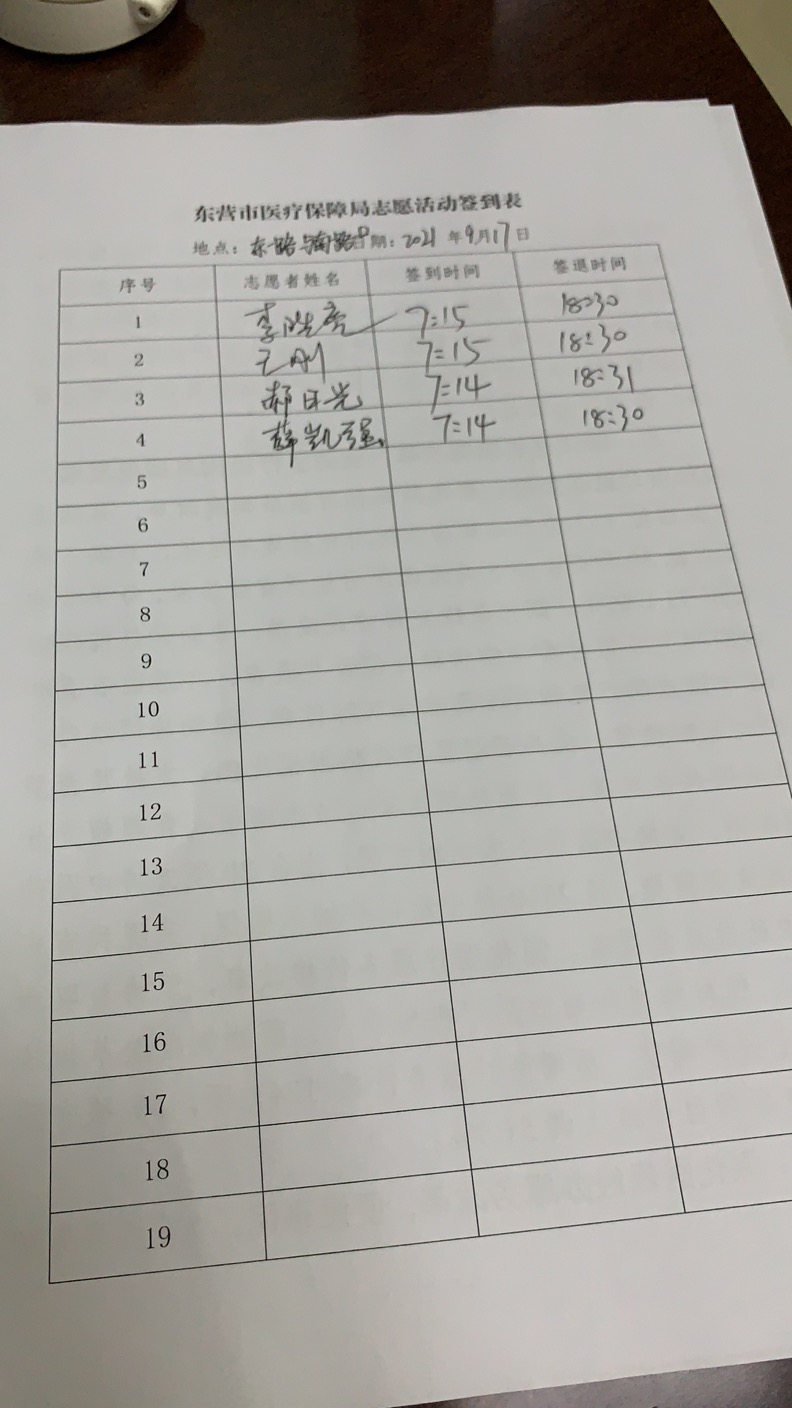 东营市医疗保障局志愿活动签到表
地点：东一路与南一路口 日期：2021 年 9 月 17 日
序号 志愿者姓名 签到时间 签退时间
1 李 7:15 18:30
2 王刚 7:15 18:30
3 郝日光 7:14 18:31
4 薛凯强 7:14 18:30
5
6
7
8
9
10
11
12
13
14
15
16
17
18
19